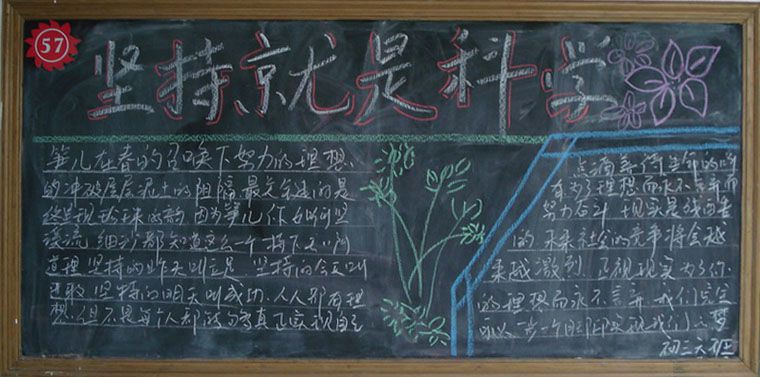 57
坚持就是科学
笋儿在春的召唤下努力的理想、
的冲破层层泥土的阻隔最关键的是
因为笋儿
溪流 细沙都知道这么一个持下
道理坚持的昨天叫立足 坚持的今天叫
进取 坚持的明天叫成功 人人都有理
想 但不是每个人都能够真正实现自己
点滴
有为了理想而永不言弃而
努力奋斗 现实是残酷
的 未来社会的竞争将会越
来越激烈 正视现实 为了你
的理想而永不言弃 我们完全
可以一步一个脚印实现我们之梦
初三六班